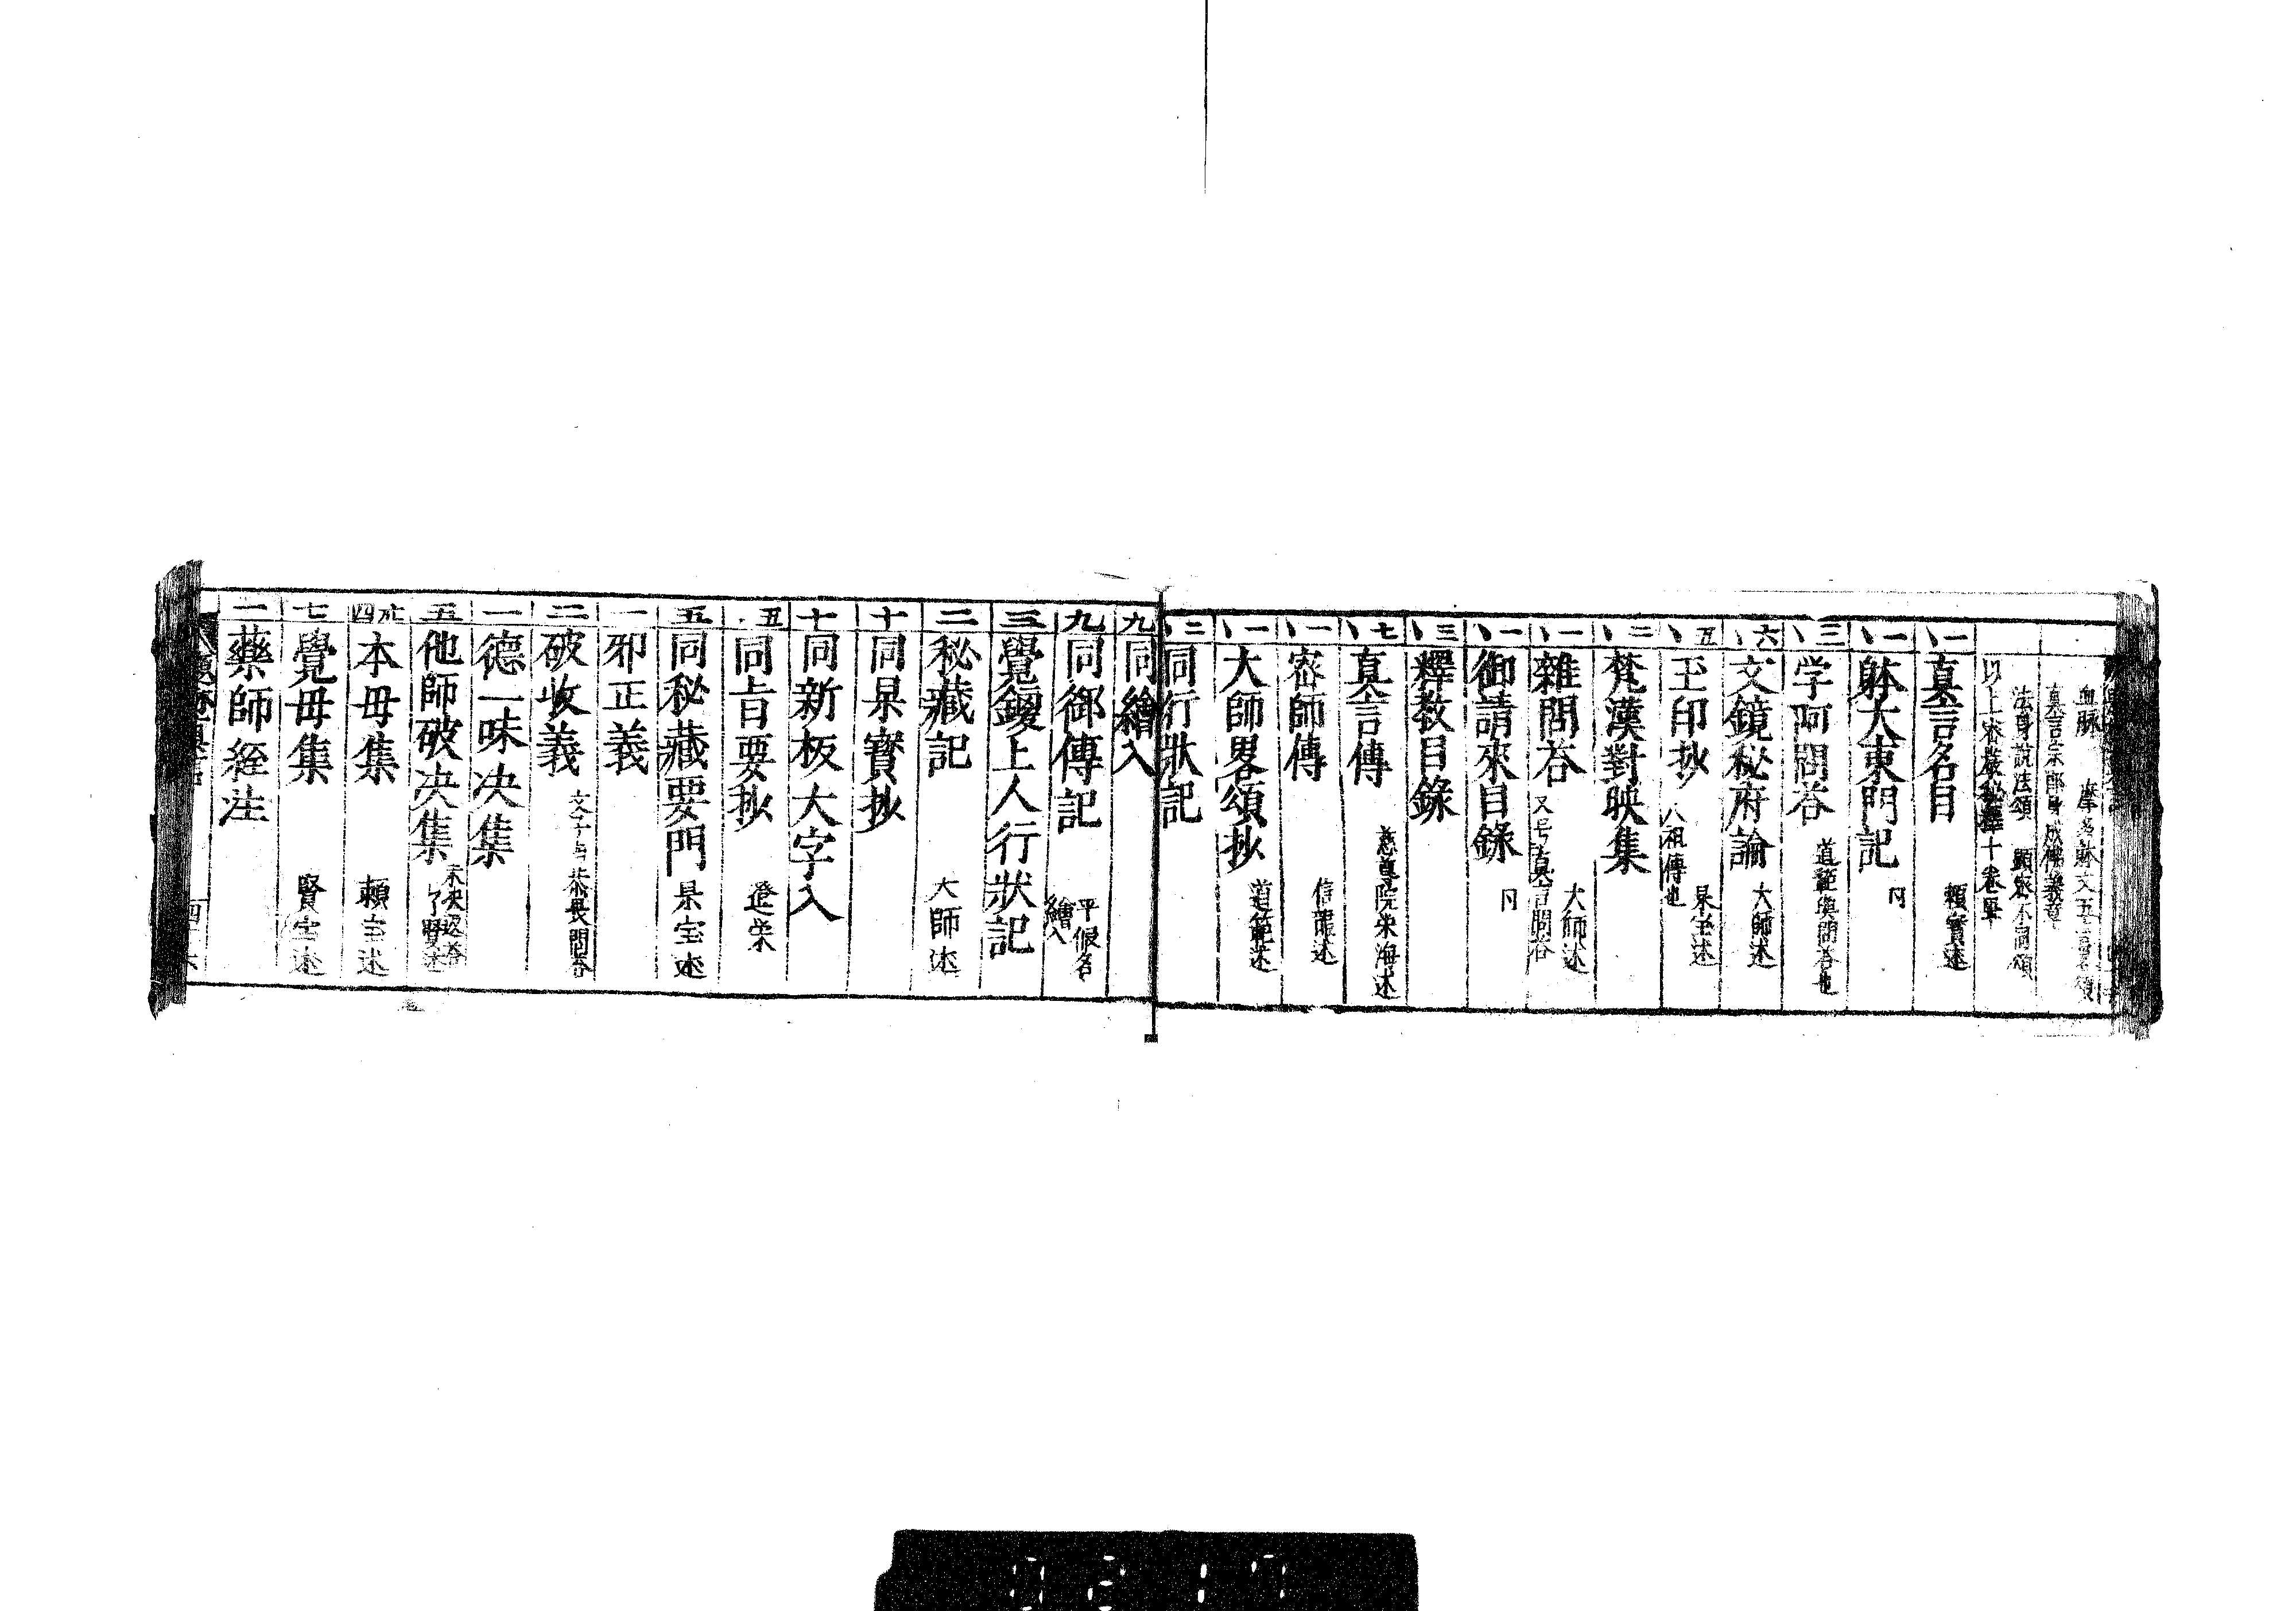 血脉 摩多躰文五言
真言宗即身成佛義章
法身說法頌 顕密不同頌
以上密嚴秘釋十卷畢
二 真言名目 頼寳述
一 躰大東門記 同
三 学呵問荅 道範與問荅也
六 文鏡秘府論 大師述
五 玉印抄 八祖傳也 杲宝述
二 梵漢對映集
一 雜問荅 又号真言問荅 大師述
一 御請來目録 同
三 釋教目錄
七 真言傳 慈尊院栄海述
一 密師傳 信龍述
一 大師畧頌抄 道範述
二 同行狀記
九 同繪入
九 同御傳記 平假名 繪入
三 覺鑁上人行狀記
二 秘藏記 大師述
十 同杲寳抄
七 同新板大字入
五 同旨要抄 澄栄
五 同秘藏要門 杲宝述
一 邪正義
二 破收義 恭畏問荅
一 德一味决集
五 他師破决集 未决返荅 了賢述
四 本母集 頼宝述
七 覺母集 賢宝述
一 藥師経注